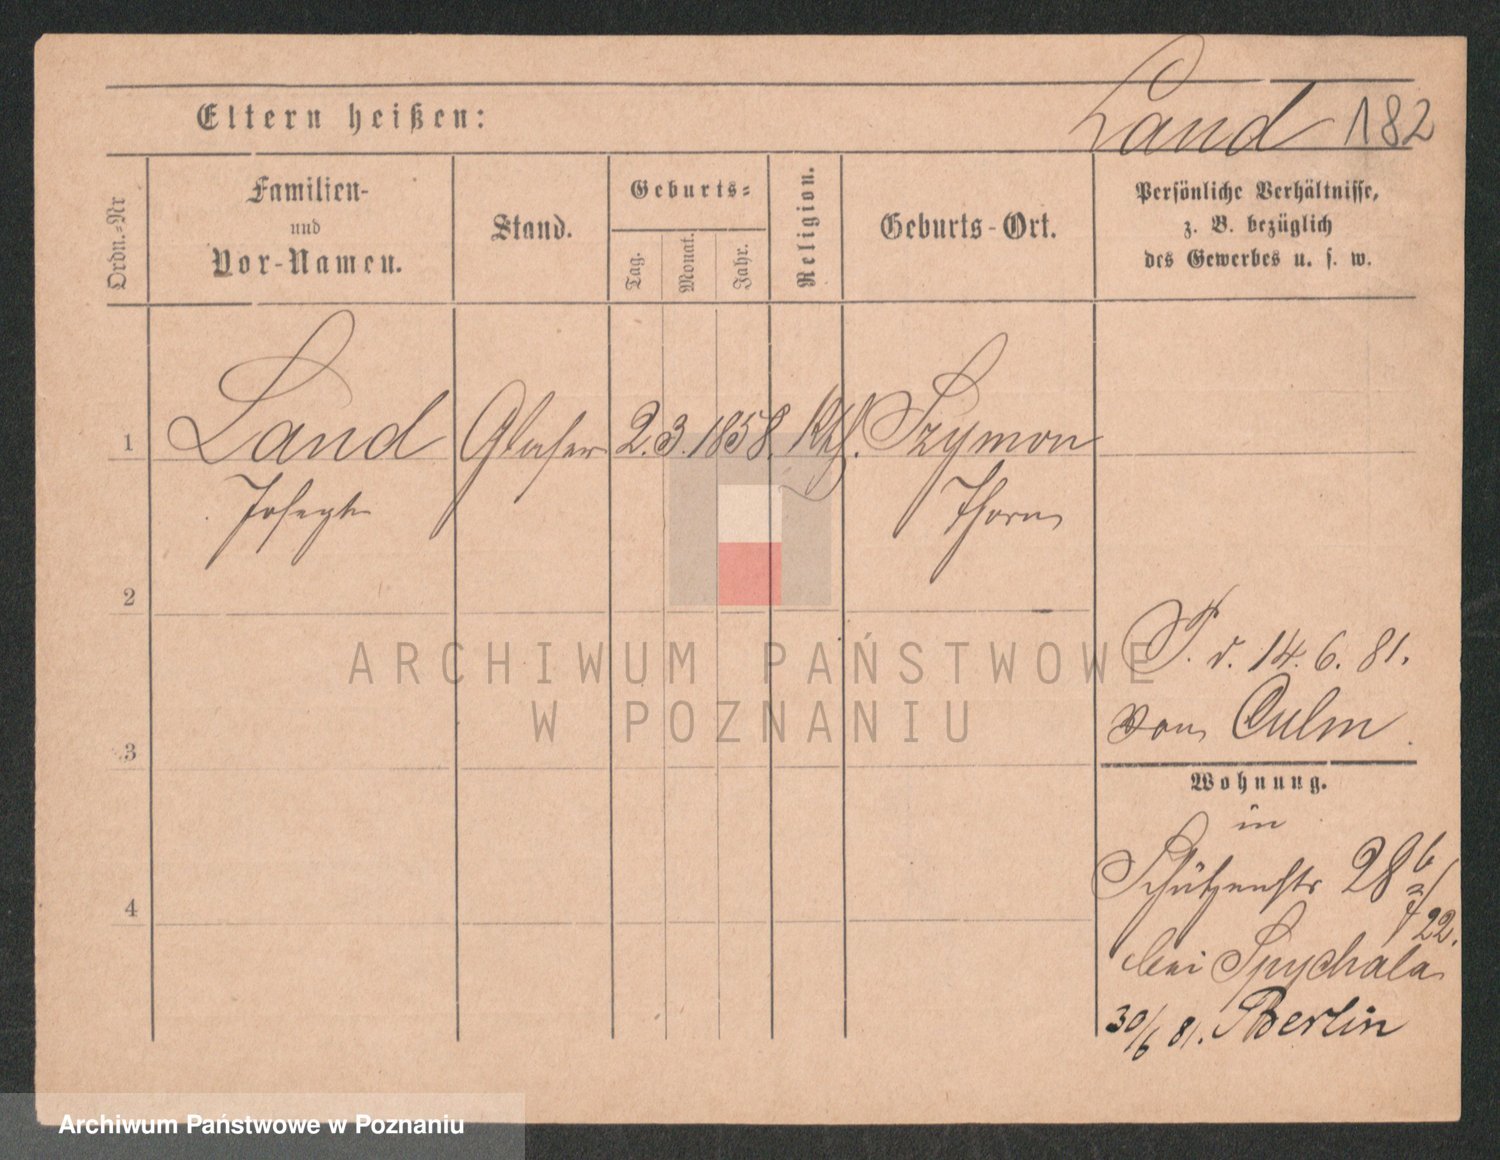 Land 182
Eltern heißen:
Ordn.=Nr
Familien-
und
Vor-Namen.
Stand.
Geburts=
Tag.
Monat.
Jahr.
Religion.
Geburts-Ort.
Persönliche Verhältnisse,
z. B. bezüglich
des Gewerbes u. s. w.
1 Land Glaser 2. 3. 1858. Kth. Szymon
Joseph Thorn
2
P. v. 14. 6. 81.
von Culm.
3
Wohnung.
in
Schützenstr 28 b
22.
4
bei Spychala
30/6 81. Berlin
ARCHIWUM PAŃSTWOWE
W POZNANIU
Archiwum Państwowe w Poznaniu